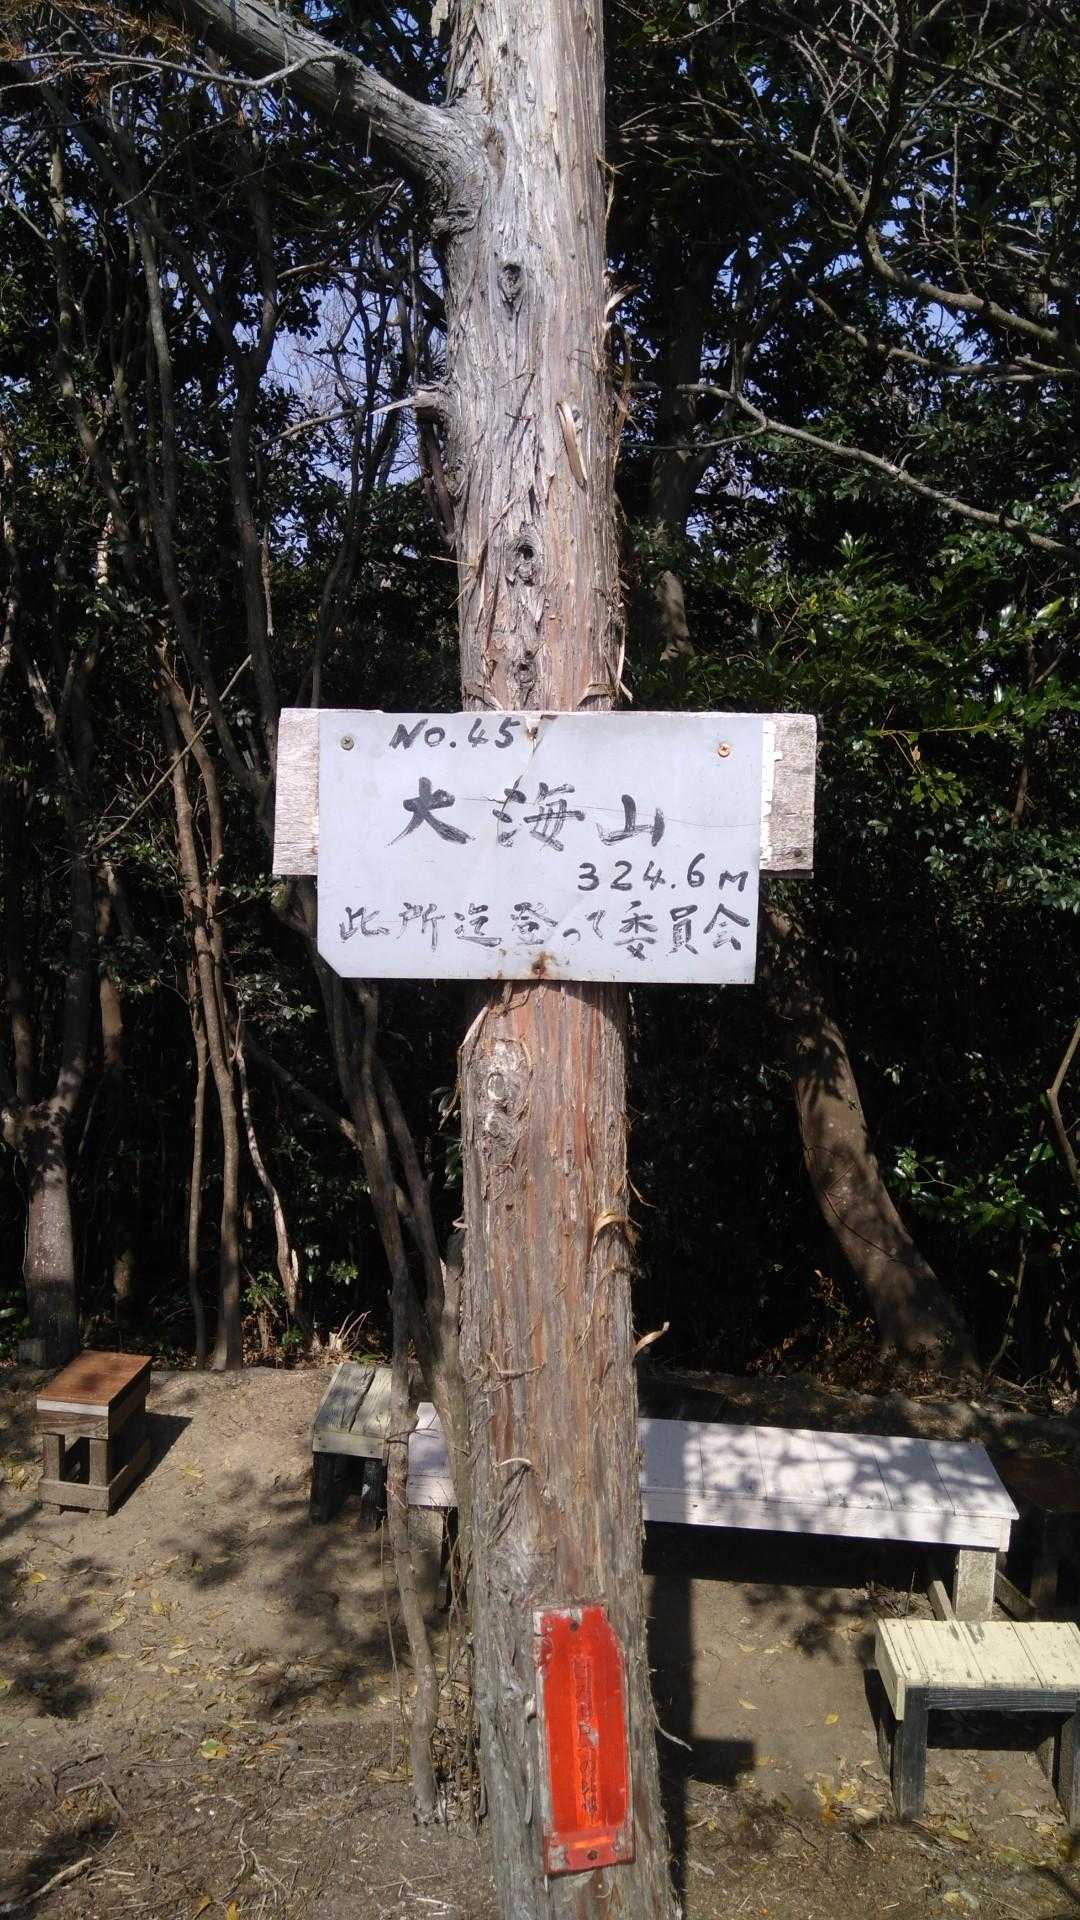 No.45
大海山
324.6M
此所迄登って委員会